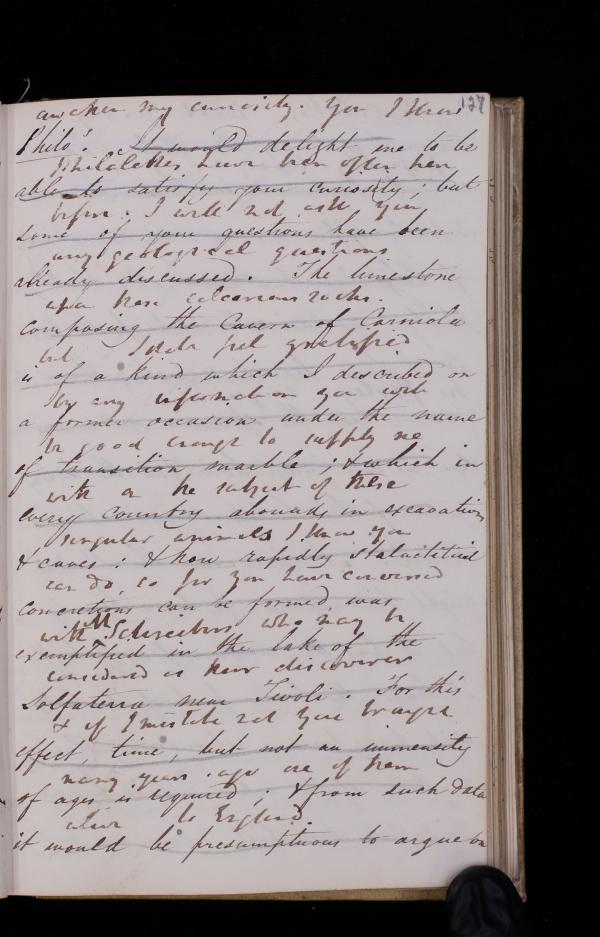 127
awaken my curiosity. You I know
Philo: It would delight me to be
Philalethes have been often here
able to satisfy your curiosity; but
before; I will not ask you
some of your questions have been
any geological questions
already discussed. The limestone
upon these calcareous rocks.
composing the Cavern of Carniola
but I shall feel gratified
is of a kind which I described on
by any information you will
a former occasion under the name
be good enough to supply me
of transition marble; & which in
with on the subject of these
every country abounds in excavations
singular animals I know you
& caves: & how rapidly stalactitical
can do, so for you have conversed
concretions can be formed was
with Mr Schreibers who may be
exemplified in the lake of the
considered as their discoverer
Solfaterra near Tivoli. For this
& if I mistake not you brought
effect, time, but not an immensity
many years ago one of them
of ages is required; & from such data
alive to England.
it would be presumptuous to argue on